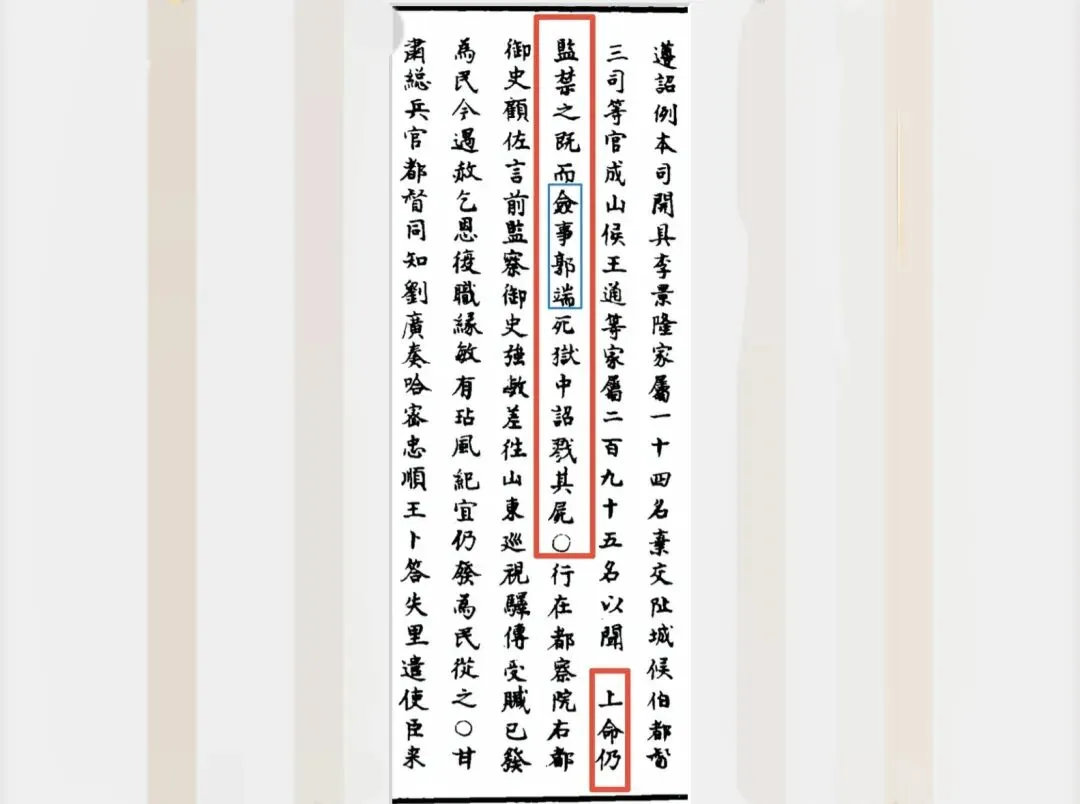 遵詔例本司開具李景隆家屬一十四名棄交阯城侯伯都督
三司等官成山侯王通等家屬二百九十五名以聞　上命仍
監禁之既而僉事郭端死獄中詔戮其屍○行在都察院右都
御史顧佐言前監察御史強敏差往山東巡視驛傳受贓已發
為民今遇赦乞恩復職緣敏有玷風紀宜仍發為民從之○甘
肅總兵官都督同知劉廣奏哈密忠順王卜答失里遣使臣来